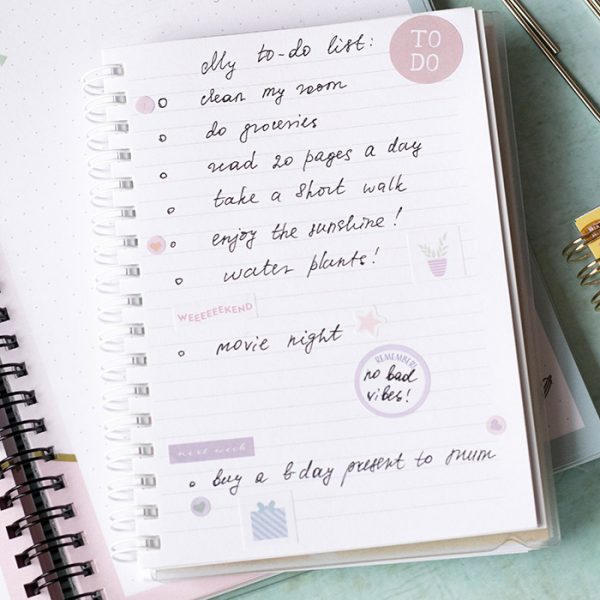 My to-do list:
TO
DO
clean my room
do groceries
read 20 pages a day
take a short walk
enjoy the sunshine!
water plants!
WEEEEEEKEND
movie night
REMEMBER!
no bad
vibes!
next week
buy a b-day present to mum